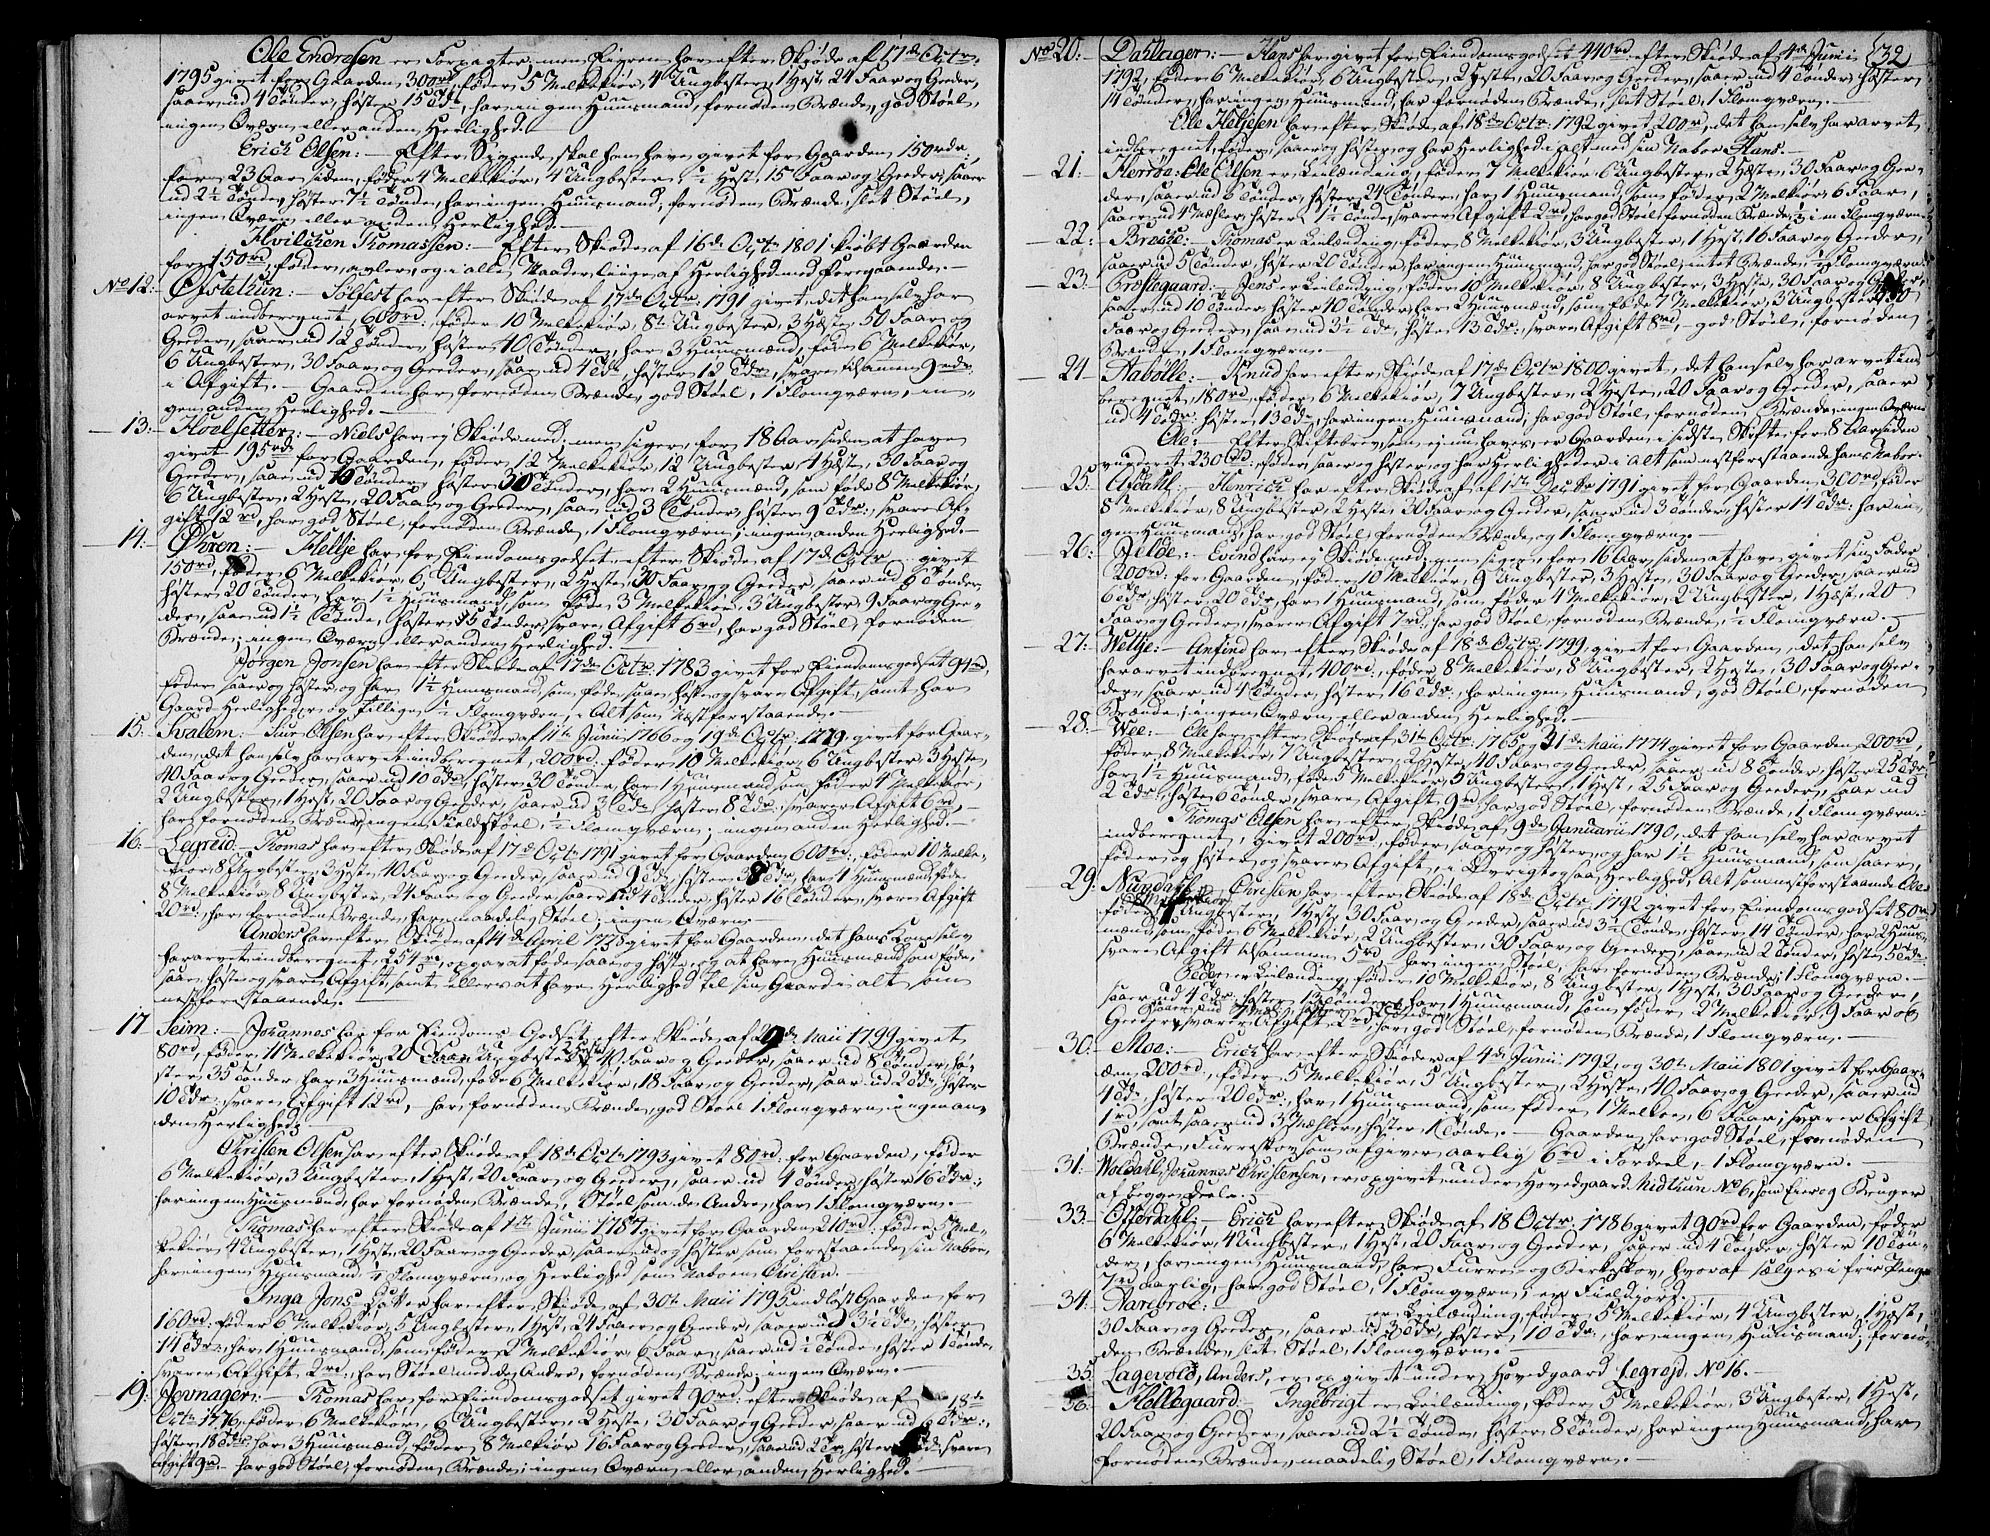 Ole Endresen er Forpagter, men Eieren har efter Skiøde af 17de Octr
1795 givet for Gaarden 300rd, føder 5 Melkekiør, 4 Ungbester, 1 Hest, 24 Faar og Geeder,
saaer ud 4 Tønder, høster 15 Tdr, har ingen Huusmand, fornøden Brænde, god Støel,
ingen Qværn eller anden Herlighed.
Erich Olsen: Efter Sigende skal han have givet for Gaarden 150rdr
for 23 Aar siden, føder 4 Melkekiør, 4 Ungbester, 1 Hest, 15 Faar og Geeder, saaer
ud 2½ Tønde, høster 7½ Tønde, har ingen Huusmand, fornøden Brænde, slet Støel,
ingen Qværn eller anden Herlighed.
Hvilchen Thomassen: Efter Skiøde af 16de Octr 1801 kiøbt Gaarden
for 150rd, føder, avler, og i alle Maader liige af Herlighed med foregaaende.
No 12: Øystethun: Sølfest har efter Skiøde af 17de Octr 1791 givet, det han selv har
arvet indberegnet, 600rd: føder 10 Melkekiør, 8 Ungbester, 3 Heste, 50 Faar og
Geeder, saaer ud 12 Tønder, høster 40 Tønder, har 3 Huusmænd, føde 6 Melkekiør,
6 Ungbester, 30 Faar og Geeder, saae ud 4 Tdr, høster 12 Tdr, svare tilsamen 9rdr
i Afgift. Gaarden har fornøden Brænde, god Støel, 1 Flomqværn, in-
gen anden Herlighed.
13: Hoelsetter: Niels har ej Skiøde med, men siger, for 18 Aar siden at have
givet 195rd for Gaarden, føder 12 Melkekiør, 12 Ungbester, 4 Heste, 30 Faar og
Geeder, saaer ud 10 Tønder, høster 30 Tønder, har 2 Huusmænd, som føde 8 Melkekiør,
6 Ungbester, 2 Heste, 20 Faar og Geeder, saae ud 3 Tønder, høster 9 Tdr: svare Af-
gift 12rd, har god Støel, fornøden Brænde, 1 Flomqværn, ingen anden Herlighed.
14: Øhren: Hellje har for Eiendomsgodset efter Skiøde af 17de Octr givet
150rd, føder 6 Melkekiør, 6 Ungbester, 2 Heste, 30 Faar og Geeder, saaer ud 6 Tønder
høster 20 Tønder, har 1½ Huusmand, som føde 3 Melkekiør, 3 Ungbester, 9 Faar og Gee-
der, saae ud 1½ Tønde, høster 5 Tønder, svare Afgift 6rd, har god Støel, fornøden
Brænde, ingen Qværn eller anden Herlighed.
Jørgen Jonsen har efter Skiøde af 17de Octr 1783 givet for Eiendomsgodset 94rd,
føder, saaer og høster, og har 1½ Huusmand, som føde, saae, høste og svare Afgift, samt har
Gaard Herligheder og tillige ½ Flomqværn, i Alt som næstforestaaende.
15: Svalem: Siur Olsen har efter Skiøder af 11te Junii 1766 og 19de Octr 1779 givet for Gaar-
den, det han selv har arvet indberegnet, 200rd: føder 10 Melkekiør, 6 Ungbester, 3 Heste,
40 Faar og Geeder, saaer ud 10 Tdr, høster 30 Tønder, har 1 Huusmand som føder 4 Melkekiør,
2 Ungbester, 1 Hest, 20 Faar og Geeder, saaer ud 3 Tdr, høster 8 Tdr: svarer Afgift 6rd,
har fornøden Brænde, ingen Fieldstøel, ½ Flomqværn, ingen anden Herlighed.
16: Legreid: Thomas har efter Skiøde af 17de Octr 1791 givet for Gaarden 600rd: føder 10 Melke-
kiør, 8 Ungbester, 3 Heste, 40 Faar og Geeder, saaer ud 9 Tdr, høster 38 Tdr, har 4 Huusmænd, føde
8 Melkekiør, 8 Ungbester, 24 Faar og Geeder, saaer ud 4 Tønder, høster 16 Tønder, svare Afgift
20rd, har fornøden Brænde, har maadelig Støel, ingen Qværn.
Anders har efter Skiøde af 14de April 1778 givet for Gaarden, det hans Kone selv
har arvet indberegnet, 254rd, opgav at føde, saae og høste, og at have Huusmænd som føde,
saae, høste og svare Afgift, samt ellers at have Herlighed til sin Gaard i alt som
nestforestaaende.
17 Seim: Johannes har for Eiendoms Godset efter Skiøde af 29de Maii 1799 givet
80rd, føder 11 Melkekiør, 20 Ungbester, 2 Heste, 40 Faar og Geeder, saaer ud 8 Tønder, hø-
ster 35 Tønder, har 3 Huusmænd, føde 6 Melkekiør, 18 Faar og Geeder, saae ud 2 Tdr, høster
10 Tdr: svare Afgift 12rd, har fornøden Brænde, god Støel, 1 Flomqværn, ingen an-
den Herlighed.
Christen Olsen har efter Skiøde af 18de Octr 1793 givet 80rd: for Gaarden, føder
6 Melkekiør, 3 Ungbester, 1 Hest, 20 Faar og Geeder, saaer ud 4 Tønder, høster 16 Tdr:,
har ingen Huusmænd, har fornøden Brænde, Støel som de Andre, har 1 Flomqværn.
Thomas har efter Skiøde af 1ste Junii 1787 givet for Gaarden 210rd: føder 5 Mel-
kekiør, 4 Ungbester, 1 Hest, 20 Faar og Geeder, saaer ud og høster som forestaaende sin Naboe,
har ingen Huusmand, ½ Flomqværn, og Herlighed som Naboen Christen.
Inga Jons Datter har efter Skiøde af 30te Maii 1795 indløst Gaarden for
160rd: føder 6 Melkekiør, 5 Ungbester, 1 Hest, 24 Faar og Geeder, saaer ud 3½ Tdr, høster
14 Tdr: har 1 Huusmand, som føder 2 Melkekiør, 6 Faar, saaer ud 1 Tønde, høster 4 Tønder,
svarer Afgift 2rd, har Støel med de Andre, fornøden Brænde, ingen Qværn.
19: Jevnager: Thomas har for Eiendomsgodset givet 90rd: efter Skiøde af 18de
Octr 1776, føder 6 Melkekiør, 6 Ungbester, 2 Heste, 30 Faar og Geeder, saaer ud 6 Tdr:,
høster 18 Tdr: har 3 Huusmænd, føder 8 Melkekiør, 16 Faar og Geeder, saae ud 2 Tdr, høster Tdr: svare
Afgift 9rd, har god Støel, fornøden Brænde, ingen Qværn eller anden Herlighed.
32
No 20: Dallager: Hans har givet for Eiendomsgodset 440rd: efter Skiøde af 4de Junii
1792, føder 6 Melkekiør, 6 Ungbester, 2 Heste, 20 Faar og Geeder, saaer ud 4 Tønder, høster
14 Tønder, har ingen Huusmand, har fornøden Brænde, slet Støel, 1 Flomqværn.
Ole Heljesen har efter Skiøde af 18de Octr 1792 givet 200rd, det han selv har arvet
indberegnet, føder, saaer og høster, og har Herlighed i alt med sin Naboe Hans.
21: Herrøe: Ole Olsen er Leilænding, føder 7 Melkekiør, 6 Ungbester, 2 Heste, 30 Faar og Gee-
der, saaer ud 6 Tønder, høster 24 Tønder, har 1 Huusmand, som føder 2 Melkekiør, 6 Faar,
saaer ud 4 Mæhler, høster 1½ Tønde, svarer Afgift 2rd, har god Støel, fornøden Brænde, ½ i en Flomqværn.
22: Brecke: Thomas er Leilænding, føder 8 Melkekiør, 3 Ungbester, 1 Hest, 16 Faar og Geeder,
saaer ud 5 Tønder, høster 20 Tønder, har ingen Huusmand, har god Støel, intet Brænde, ½ Flomqværn.
23: Prestegaard: Jens er Leilænding, føder 10 Melkekiør, 8 Ungbester, 3 Heste, 30 Faar og Geeder,
saaer ud 10 Tønder, høster 40 Tønder, har 2 Huusmænd, som føde 7 Melkekiør, 3 Ungbester, 30
Faar og Geeder, saae ud 3½ Tdr, høster 13 Tdr: svare Afgift 8rd, god Støel, fornøden
Brænde, 1 Flomqværn.
24 Nabølle: Knud har efter Skiøde af 17de Octr 1800 givet, det han selv har arvet ind-
beregnet, 180rd, føder 6 Melkekiør, 7 Ungbester, 2 Heste, 20 Faar og Geeder, saaer
ud 4 Tdr: høster 13 Tdr, har ingen Huusmand, har god Støel, fornøden Brænde, ingen Qværn.
Ole: Efter Skiftebrev, som ej nu haves, er Gaarden i sidste Skifte for 8 Aar siden
vurderet 230rd: føder, saaer og høster, og har Herligheder i alt som nestforestaaende hans Naboe.
25: Afdahl: Henrich har efter Skiøde af 1ste Decbr 1791 givet for Gaarden 300rd, føder
8 Melkekiør, 8 Ungbester, 2 Heste, 30 Faar og Geeder, saaer ud 3 Tønder, høster 14 Tdr: har in-
gen Huusmand, har god Støel, fornøden Brænde, og 1 Flomqværn.
26: Jelde: Evind har ej Skiøde med, men siger, for 16 Aar siden at have givet sin Fader
200rd: for Gaarden, føder 10 Melkekiør, 9 Ungbester, 3 Heste, 30 Faar og Geeder, saaer ud
6 Tdr, høster 20 Tdr, har 1 Huusmand, som føder 4 Melkekiør, 2 Ungbester, 1 Hæst, 20
Faar og Geeder, svarer Afgift 7rd: har god Støel, fornøden Brænde, ½ Flomqværn.
27: Weltje: Anfind har efter Skiøde af 18de Octr 1799, givet for Gaarden, det han selv
har arvet indberegnet, 400rd:, føder 8 Melkekiør, 8 Ungbester, 2 Heste, 30 Faar og Gee-
der, saaer ud 4 Tønder, høster 16 Tdr:, har ingen Huusmand, god Støel, fornøden
Brænde, ingen Qværn eller anden Herlighed.
28: Wee: Ole har efter Skiøde af 31te Octr 1765 og 31de Maii 1774 givet for Gaarden 200rd,
føder 8 Melkekiør, 7 Ungbester, 2 Heste, 40 Faar og Geeder, saaer ud 8 Tønder, høster 25 Tdr
har 1½ Huusmand, føde 5 Melkekiør, 5 Ungbester, 1 Hest, 25 Faar og Geeder, saae ud
2 Tdr, høste 6 Tønder, svare Afgift 9rd, har god Støel, fornøden Brænde, 1 Flomqværn.
Thomas Olsen har efter Skiøde af 9de Januarii 1790, det han selv har arvet
indberegnet, givet 200rd, føder, saaer og høster, og har 1½ Huusmand, som saaer,
føder og høster og svarer Afgift, i Øvrigt og saa Herlighed, Alt som nestforestaaende Ole.
29: Nundahl: Christen har efter Skiøde af 18de Octr 1792 givet for Eiendomsgodset 80rd
føder Ungbester, 1 Hest, 30 Faar og Geeder, saaer ud 3½ Tønde, høster 14 Tønder, har 2 Huus-
mænd, som føde 6 Melkekiør, 2 Ungbester, 30 Faar og Geeder, saae ud 2 Tønder, høste 5 Tdr:
svare Afgift tilsammen 5rd, har ingen Støel, har fornøden Brænde, 1 Flomqværn.
Peder er Leilænding, føder 10 Melkekiør, 8 Ungbester, 1 Hest, 30 Faar og Geeder,
saaer ud 4 Tdr: høster Tønder, har 1 Huusmand, som føder 2 Melkekiør, 9 Faar og
Geeder, svarer Afgift 2rd, har god Støel, fornøden Brænde, 1 Flomqværn.
30: Moe: Erich har efter Skiøder af 4de Junii 1792, og 30te Maii 1801 givet for Gaar-
den 200rd, føder 5 Melkekiør, 5 Ungbester, 2 Heste, 40 Faar og Geeder, saaer ud
4 Tdr, høster 20 Tdr:, har 1 Huusmand, som føder 1 Melkekoe, 6 Faar, svarer Afgift
1rd, samt saaer ud 3 Mæhler, høster 1 Tønde. Gaarden har god Støel, fornøden
Brænde, Furreskov som afgiver aarlig 6rd i Fordeel, 1 Flomqværn.
31: Woldahl, Johannes Christensen, er opgivet under Hovedgaard Midthun No 6, som Eier og Bruger
af begge Deele.
33: Offerdahl: Erich har efter Skiøde af 18 Octr 1786 givet 90rd for Gaarden, føder
6 Melkekiør, 4 Ungbester, 1 Hest, 20 Faar og Geeder, saaer ud 4 Tønder, høster 10 Tøn-
der, har ingen Huusmand, har Furre- og Birkeskov, hvoraf sælges i frie Penge
7rd aarlig, har god Støel, 1 Flomqværn, er Fieldjord.
34: Aarebroe: er Leilænding, føder 5 Melkekiør, 4 Ungbester, 1 Hæst,
30 Faar og Geeder, saaer ud 3 Tdr, høster 10 Tdr:, har ingen Huusmand, fornø-
den Brænde, slet Støel, 1 Flomqværn.
35 Lagevold, Anders, er opgivet under Hovedgaard Legrejd No 16.
36: Hollegaard: Ingebrigt er Leilænding, føder 5 Melkekiør, 3 Ungbester, 1 Hest,
20 Faar og Geeder, saaer ud 2½ Tønde, høster 8 Tønder, har ingen Huusmand, har
fornøden Brænde, maadelig Støel, 1 Flomqværn.